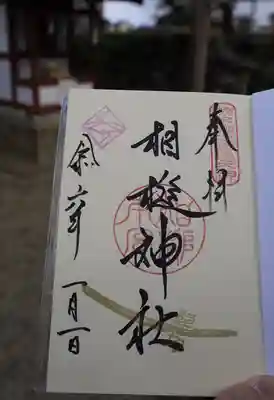 奉拝
相槌神社
令六年 一月一日